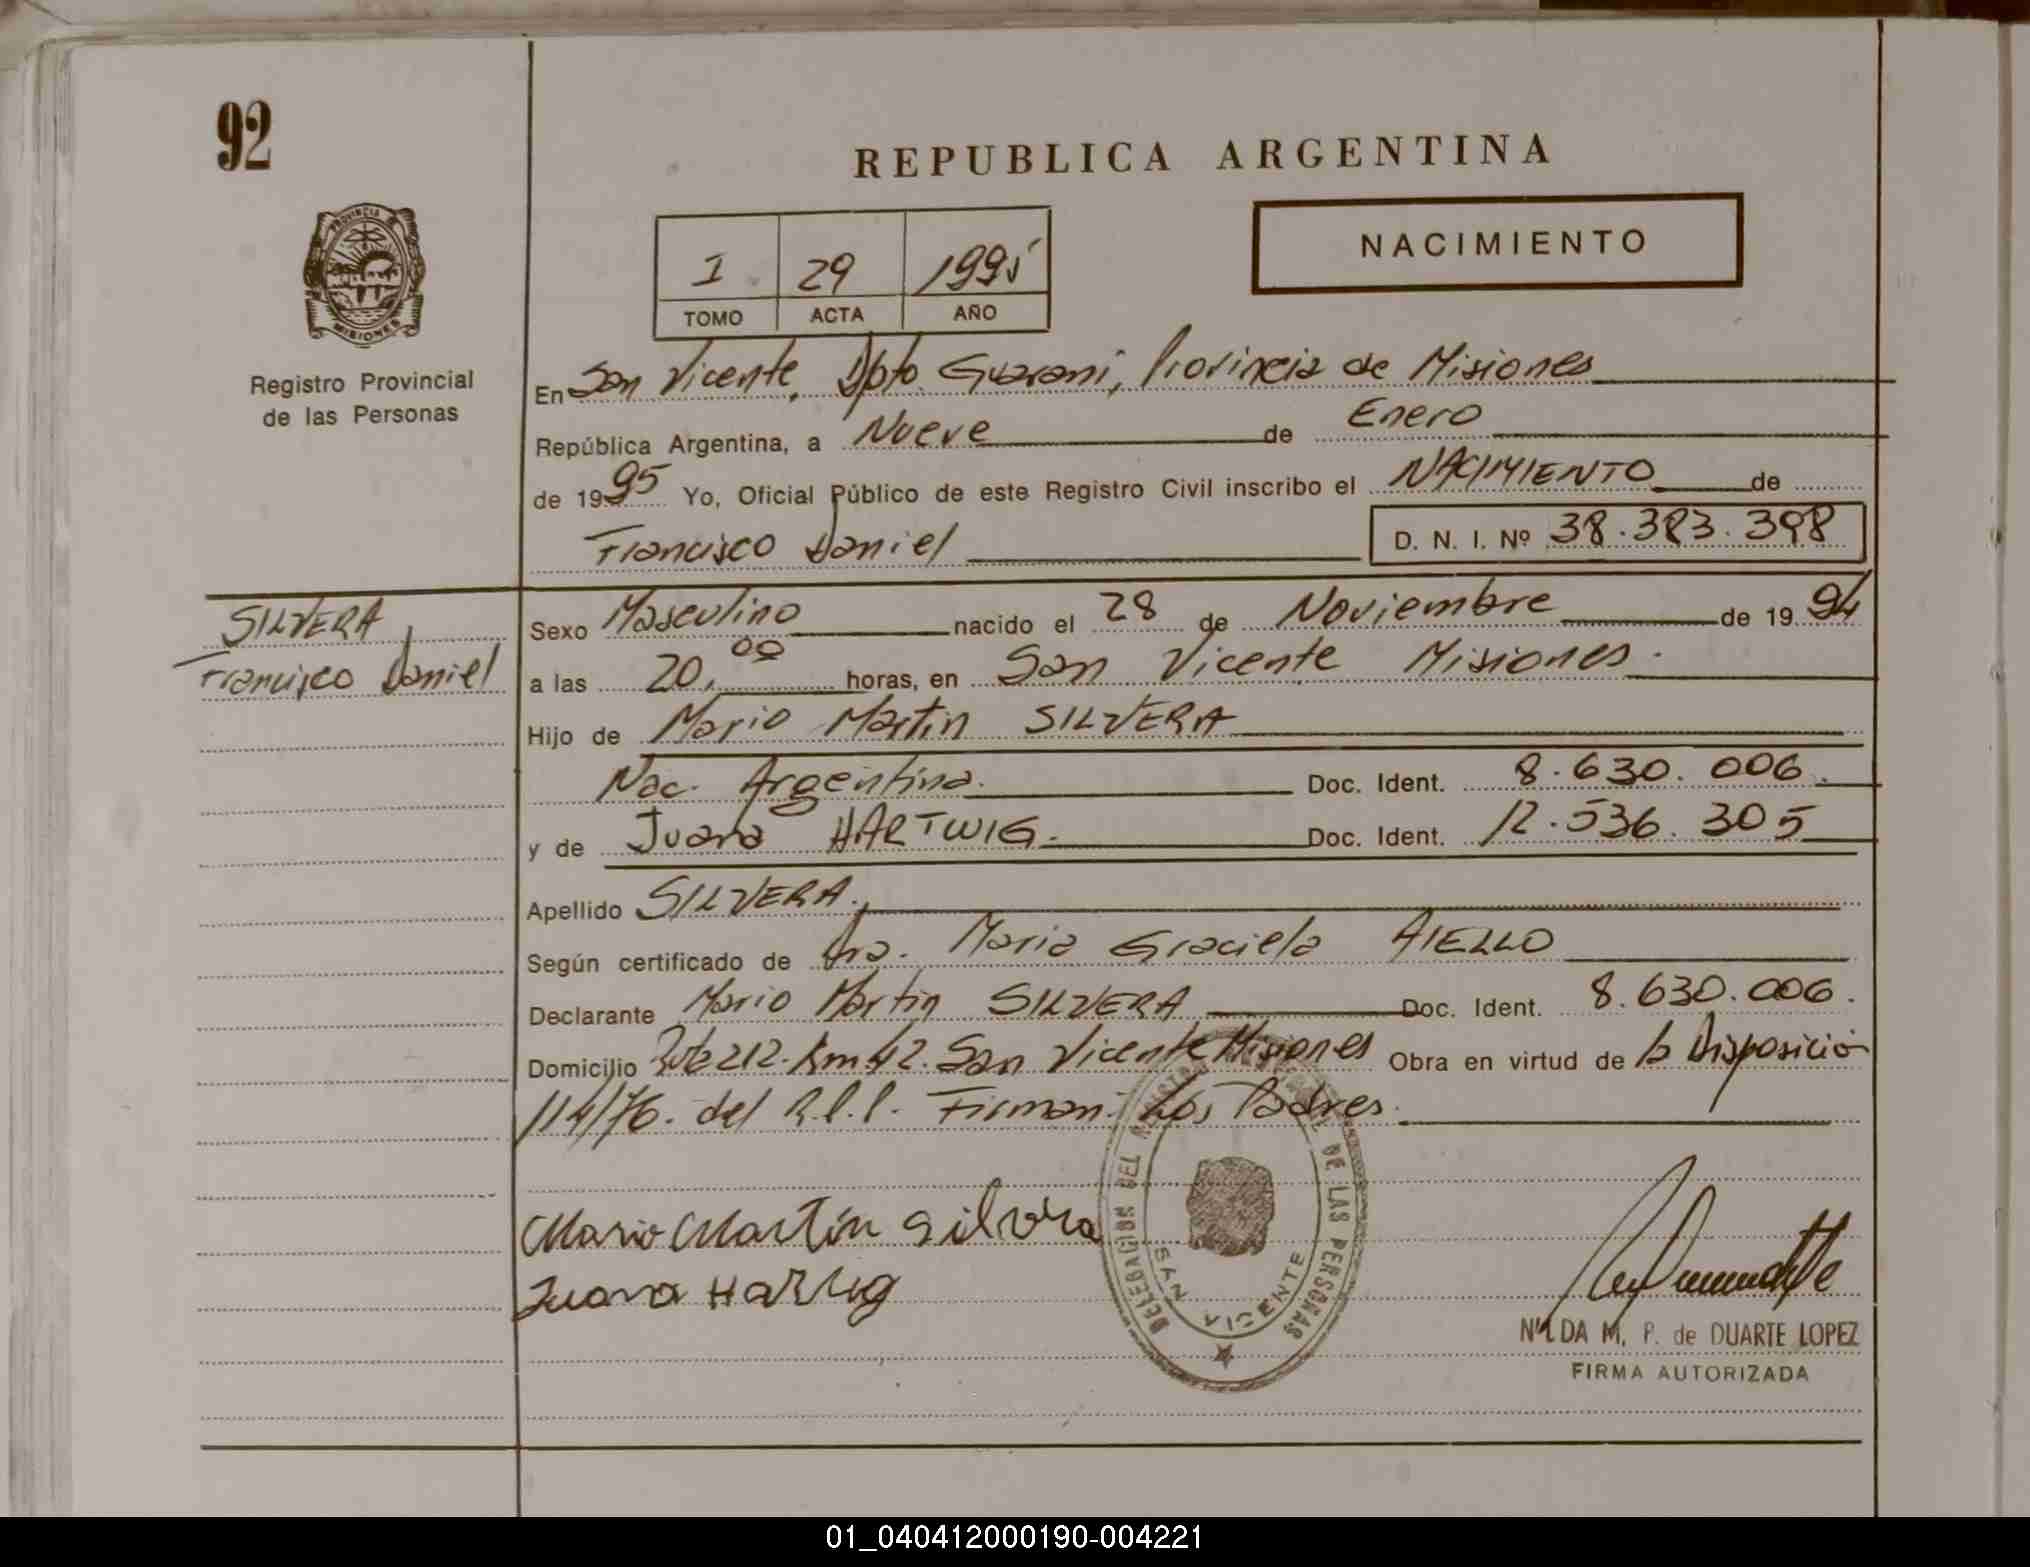 92
REPUBLICA ARGENTINA
PROVINCIA DE MISIONES
I 29 1995
TOMO ACTA AÑO
NACIMIENTO
Registro Provincial
de las Personas
En San Vicente, Dpto Guarani, Provincia de Misiones
República Argentina, a Nueve de Enero
de 1995 Yo, Oficial Público de este Registro Civil inscribo el NACIMIENTO de
Francisco Daniel D. N. I. Nº 38.383.398
SILVERA
Francisco Daniel
Sexo Masculino nacido el 28 de Noviembre de 1994
a las 20,00 horas, en San Vicente Misiones.
Hijo de Mario Martin SILVERA
Nac. Argentina. Doc. Ident. 8.630.006.
y de Juana HARTWIG. Doc. Ident. 12.536.305
Apellido SILVERA.
Según certificado de Dra. Maria Graciela AIELLO
Declarante Mario Martin SILVERA Doc. Ident. 8.630.006.
Domicilio Ruta 212. Km 42. San Vicente Misiones Obra en virtud de la Disposición
114/76. del R.P.P. Firman: Los Padres.
Mario Martín Silvera
Juana
DELEGACION DEL DE LAS PERSONAS
SAN VICENTE
NILDA M. P. de DUARTE LOPEZ
FIRMA AUTORIZADA
01_040412000190-004221